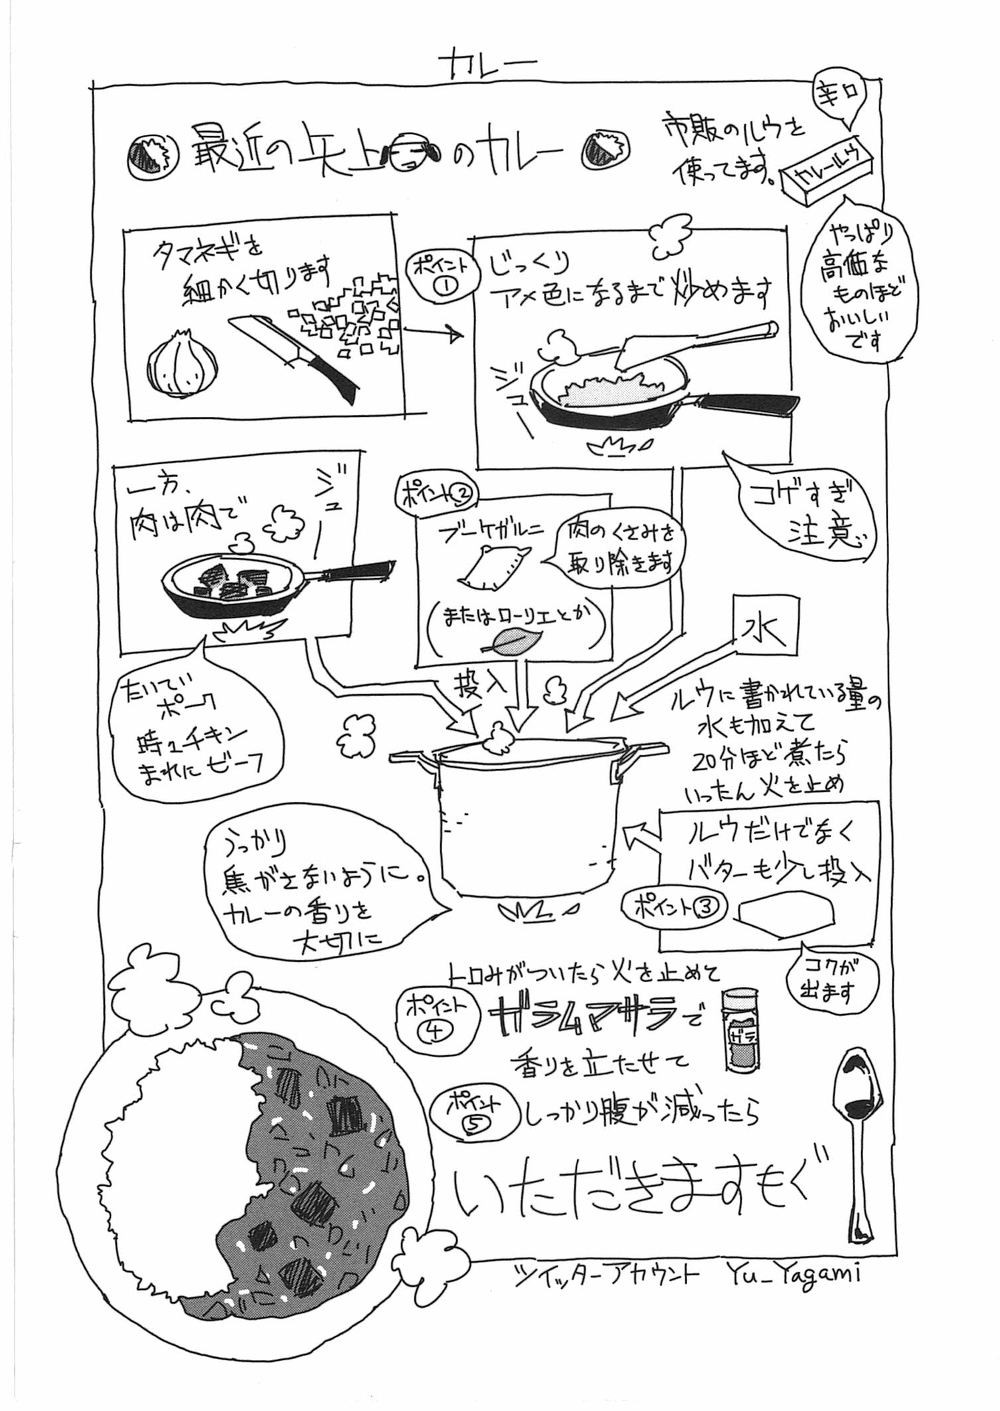 カレー
最近の矢上のカレー
市販のルウを
使ってます。
辛口
カレールウ
やっぱり
高価な
ものほど
おいしい
です
タマネギを
細かく切ります
ポイント
①
じっくり
アメ色になるまで炒めます
ジュー
コゲすぎ
注意
一方、
肉は肉で
ジュー
たいてい
ポーク
時々チキン
まれにビーフ
ポイント②
ブーケガルニ
肉のくさみを
取り除きます
(またはローリエとか)
投入
水
ルウに書かれている量の
水も加えて
20分ほど煮たら
いったん火を止め
ルウだけでなく
バターも少し投入
ポイント③
コクが
出ます
うっかり
焦がさないように。
カレーの香りを
大切に
トロみがついたら火を止めて
ポイント
④
ガラムマサラで
ガラ
香りを立たせて
ポイント
⑤
しっかり腹が減ったら
いただきますもぐ
ツイッターアカウント Yu_Yagami